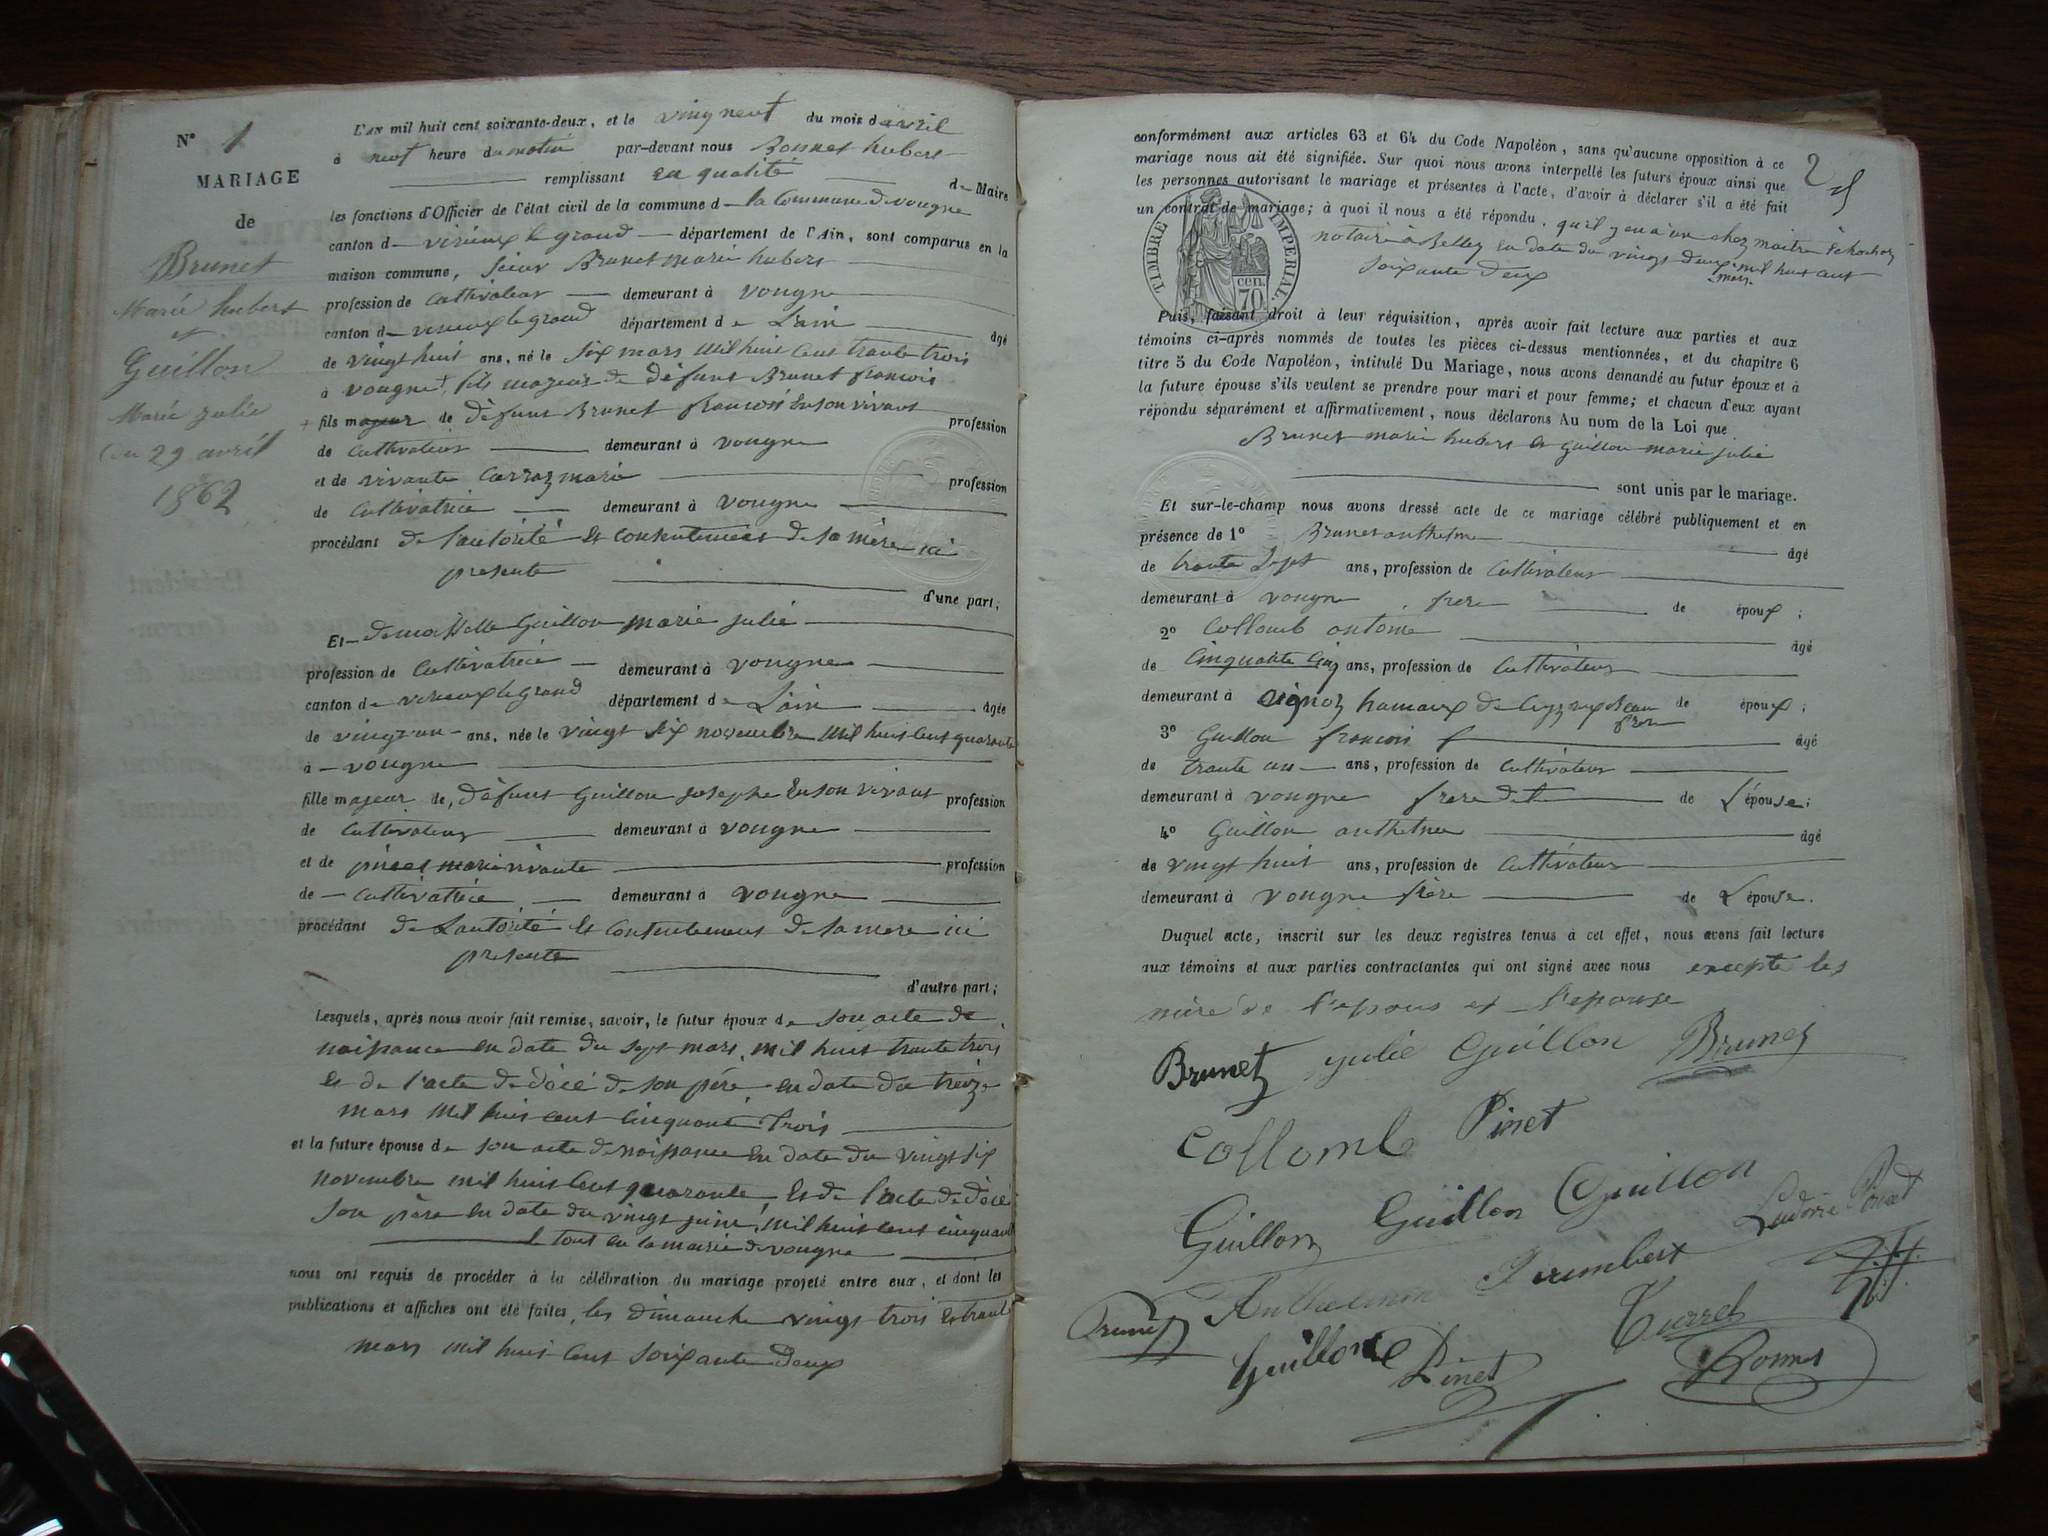 N° 1
MARIAGE
de
Brunet
Marie hubert
et
Guillon
Marie julie
du 29 avril
1862
L'AN mil huit cent soixante-deux, et le vingneuf du mois d'avril
à neuf heure du matin par-devant nous Bonnet hubert
remplissant en qualité de Maire
les fonctions d'Officier de l'état civil de la commune d la Commune de vongne
canton d virieux le grand département de l'Ain, sont comparus en la
maison commune, sieur Brunet marie hubert
profession de Cultivateur demeurant à vongne
canton d virieux le grand département de L'ain âgé
de vingt huit ans, né le six mars mil huit cent trante trois
à vongne + fils majeur de défunt Brunet francois
+ fils majeur de défunt Brunet francois En son vivant profession
de Cultivateur demeurant à vongne
et de vivante Carroz marie profession
de Cultivatrice demeurant à vongne
procédant de l'autorité et consentement de sa mère ici
presente
d'une part;
Et demoiselle Guillon marie julie
profession de Cultivatrice demeurant à vongne
canton de virieux le grand département de L'ain âgée
de vingt un ans, née le vingt six novembre mil huit cent quarante
à vongne
fille majeur de, défunt Guillon josephe En son vivant profession
de Cultivateur demeurant à vongne
et de pinet marie vivante profession
de Cultivatrice demeurant à vongne
procédant de L'autorité et Consentement de sa mere ici
presente
d'autre part;
Lesquels, après nous avoir fait remise, savoir, le futur époux de son acte de
naissance en date du sept mars, mil huit trante trois
et de l'acte de décé de son père en date du treize
mars mil huit cent cinquante trois
et la future épouse de son acte de naissance en date du vingt six
novembre mil huit cent quarante et de l'acte de décé
son père en date du vingt juin, mil huit cent cinquante
le tout en la mairie de vongne
nous ont requis de procéder à la célébration du mariage projeté entre eux, et dont les
publications et affiches ont été faites, les dimanche vingt trois et trante
mars mil huit cent soixante deux
conformément aux articles 63 et 64 du Code Napoléon, sans qu'aucune opposition à ce
mariage nous ait été signifiée. Sur quoi nous avons interpellé les futurs époux ainsi que
les personnes autorisant le mariage et présentes à l'acte, d'avoir à déclarer s'il a été fait
un contrat de mariage; à quoi il nous a été répondu, qu'il y en a un chez maitre
notaire à Belley en date du vingt deux mars mil huit cent
soixante deux
2
TIMBRE IMPÉRIAL
70 cen.
Puis, faisant droit à leur réquisition, après avoir fait lecture aux parties et aux
témoins ci-après nommés de toutes les pièces ci-dessus mentionnées, et du chapitre 6
titre 5 du Code Napoléon, intitulé Du Mariage, nous avons demandé au futur époux et à
la future épouse s'ils veulent se prendre pour mari et pour femme; et chacun d'eux ayant
répondu séparément et affirmativement, nous déclarons Au nom de la Loi que
Brunet marie hubert et Guillon marie julie
sont unis par le mariage.
Et sur-le-champ nous avons dressé acte de ce mariage célébré publiquement et en
présence de 1° Brunet anthelme âgé
de trante sept ans, profession de Cultivateur
demeurant à vongne, frere de époux;
2° Collomb antoine âgé
de Cinquante Cinq ans, profession de Cultivateur
demeurant à hamaux de Beau frere de époux;
3° Guillon francois âgé
de trante un ans, profession de Cultivateur
demeurant à vongne frere de L'épouse;
4° Guillon anthelme âgé
de vingt huit ans, profession de Cultivateur
demeurant à vongne frère de L'épouse.
Duquel acte, inscrit sur les deux registres tenus à cet effet, nous avons fait lecture
aux témoins et aux parties contractantes qui ont signé avec nous excepté les
mère de l'epous et l'epouse
Brunet julie Guillon Brunet
Collomb Pinet
Guillon Guillon Guillon
Jeumbert
Brunet
Guillon Pinet Bonnet